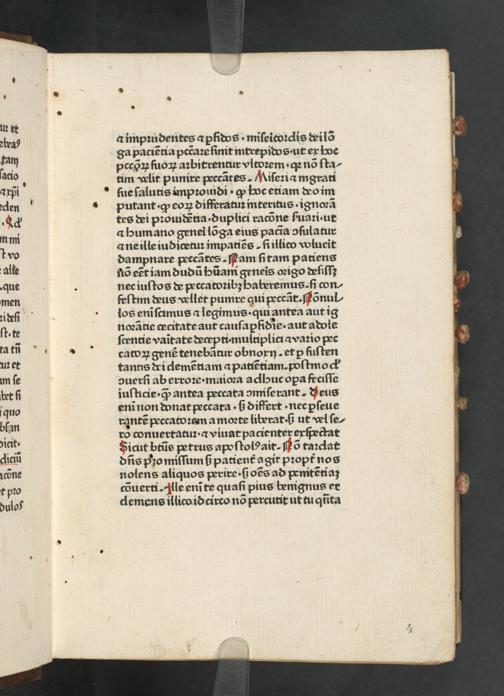 ur et
tam
satio
⁊ xp̄i
eden
m mi
st vo
alle
. que
omen
st . te
tur et
um se
i quo
dicit .
diciū
acōne
et pro
dulos
⁊ imprudentes ⁊ ꝑfidos . misericordis dei lō
ga paciētia peccare sinit intrepidos . ut ex hoc
pctōꝝ suoꝝ arbitrentur vltorem . qꝛ nō sta-
tim velit punire peccātes . Miseri ⁊ īngrati
sue salutis improuidi . qꝫ hoc etiam deo im
putant . qꝫ eoꝝ differatur interitus . ignorā
tes dei prouidētiā . duplici racōne suaūi . ut
⁊ humano generi lōga eius paciā ꝯsulatur
⁊ ne ille iudicetur impatiēs . si illico volueit
dampnare peccātes . Nam si tam patiens
nō eēt iam dudū hūam geneis origo defisꝫ
nec iustos de peccatoribꝫ haberemus . si con-
festim deus vellet punire qui peccāt . Nōnul
los enī scimus ⁊ legimus . qui antea aut ig
norātie cecitate aut causa ꝑfidie . aut adole
scentie vaītate decepti multiplici ⁊ vario pec
catoꝝ genē tenebātur obnoxij . et ꝑ susten
tantis dei clemētiam ⁊ patiētiam . postmodū
ꝯuersi ab errore . maiora adhuc opa fecisse
iusticie . qꝫ antea peccata ꝯmiserant . Deus
enī non donat peccata . sꝫ differt . nec ꝑseue
rantē peccatorem a morte liberat . sꝫ ut vel se-
ro conuertatur . ⁊ viuat pacienter exspectat
Sicut btūs petrus apostolꝰ ait . Nō tardat
dn̄s ꝓmissum sꝫ patienť agit propť nos
nolens aliquos perire . sꝫ oēs ad penitētiaꝫ
cōuerti . Ille enī te quasi pius benignus et
clemens illico idcirco nō percutit ut tu qn̄ta